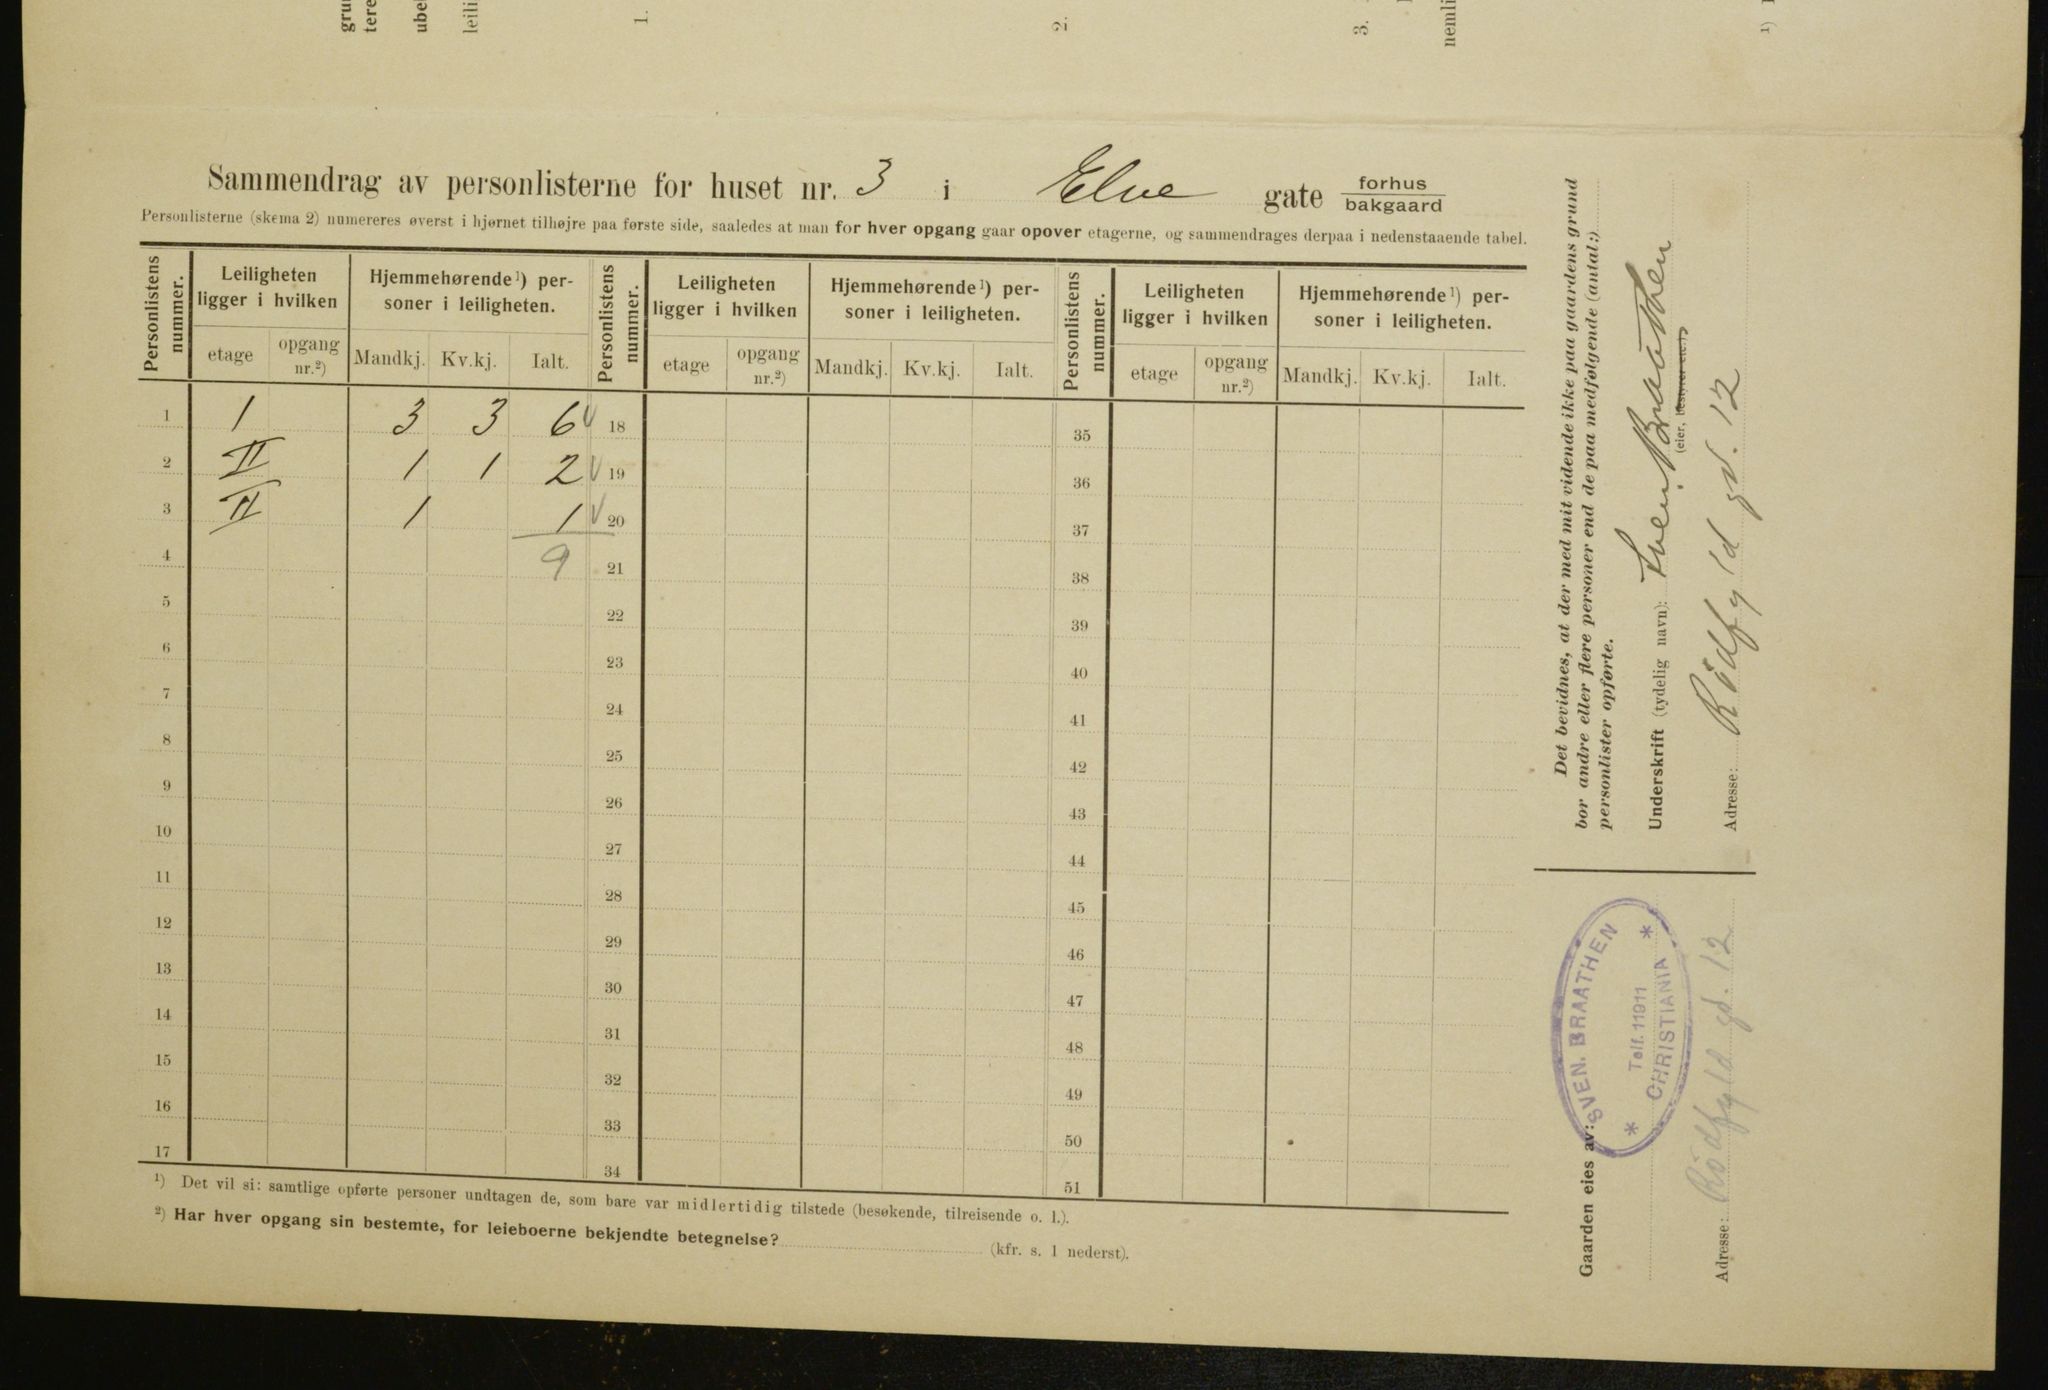 gru
tere
ube
leili
1.
2.
3.
nemli
¹)
Sammendrag av personlisterne for huset nr. 3 i Elve gate forhus bakgaard
Personlisterne (skema 2) numereres øverst i hjørnet tilhøjre paa første side, saaledes at man for hver opgang gaar opover etagerne, og sammendrages derpaa i nedenstaaende tabel.
Personlistens nummer. Leiligheten ligger i hvilken Hjemmehørende¹) personer i leiligheten. Personlistens nummer. Leiligheten ligger i hvilken Hjemmehørende¹) personer i leiligheten. Personlistens nummer. Leiligheten ligger i hvilken Hjemmehørende¹) personer i leiligheten.
etage opgang nr.²) Mandkj. Kv.kj. Ialt. etage opgang nr.²) Mandkj. Kv.kj. Ialt. etage opgang nr.²) Mandkj. Kv.kj. Ialt.
1 I 3 3 6 √ 18 35
2 II 1 1 2 √ 19 36
3 II 1 1 √ 20 37
4 9 21 38
5 22 39
6 23 40
7 24 41
8 25 42
9 26 43
10 27 44
11 28 45
12 29 46
13 30 47
14 31 48
15 32 49
16 33 50
17 34 51
¹) Det vil si: samtlige opførte personer undtagen de, som bare var midlertidig tilstede (besøkende, tilreisende o. l.).
²) Har hver opgang sin bestemte, for leieboerne bekjendte betegnelse? (kfr. s. 1 nederst).
Det bevidnes, at der med mit vidende ikke paa gaardens grund
bor andre eller flere personer end de paa medfølgende (antal:)
personlister opførte.
Underskrift (tydelig navn): Sven Braathen
(eier, bestyrer etc.)
Adresse: Rödfyld gd. 12
Gaarden eies av:
SVEN. BRAATHEN
Telf. 11911
* CHRISTIANIA *
Adresse: Rödfyld gd. 12